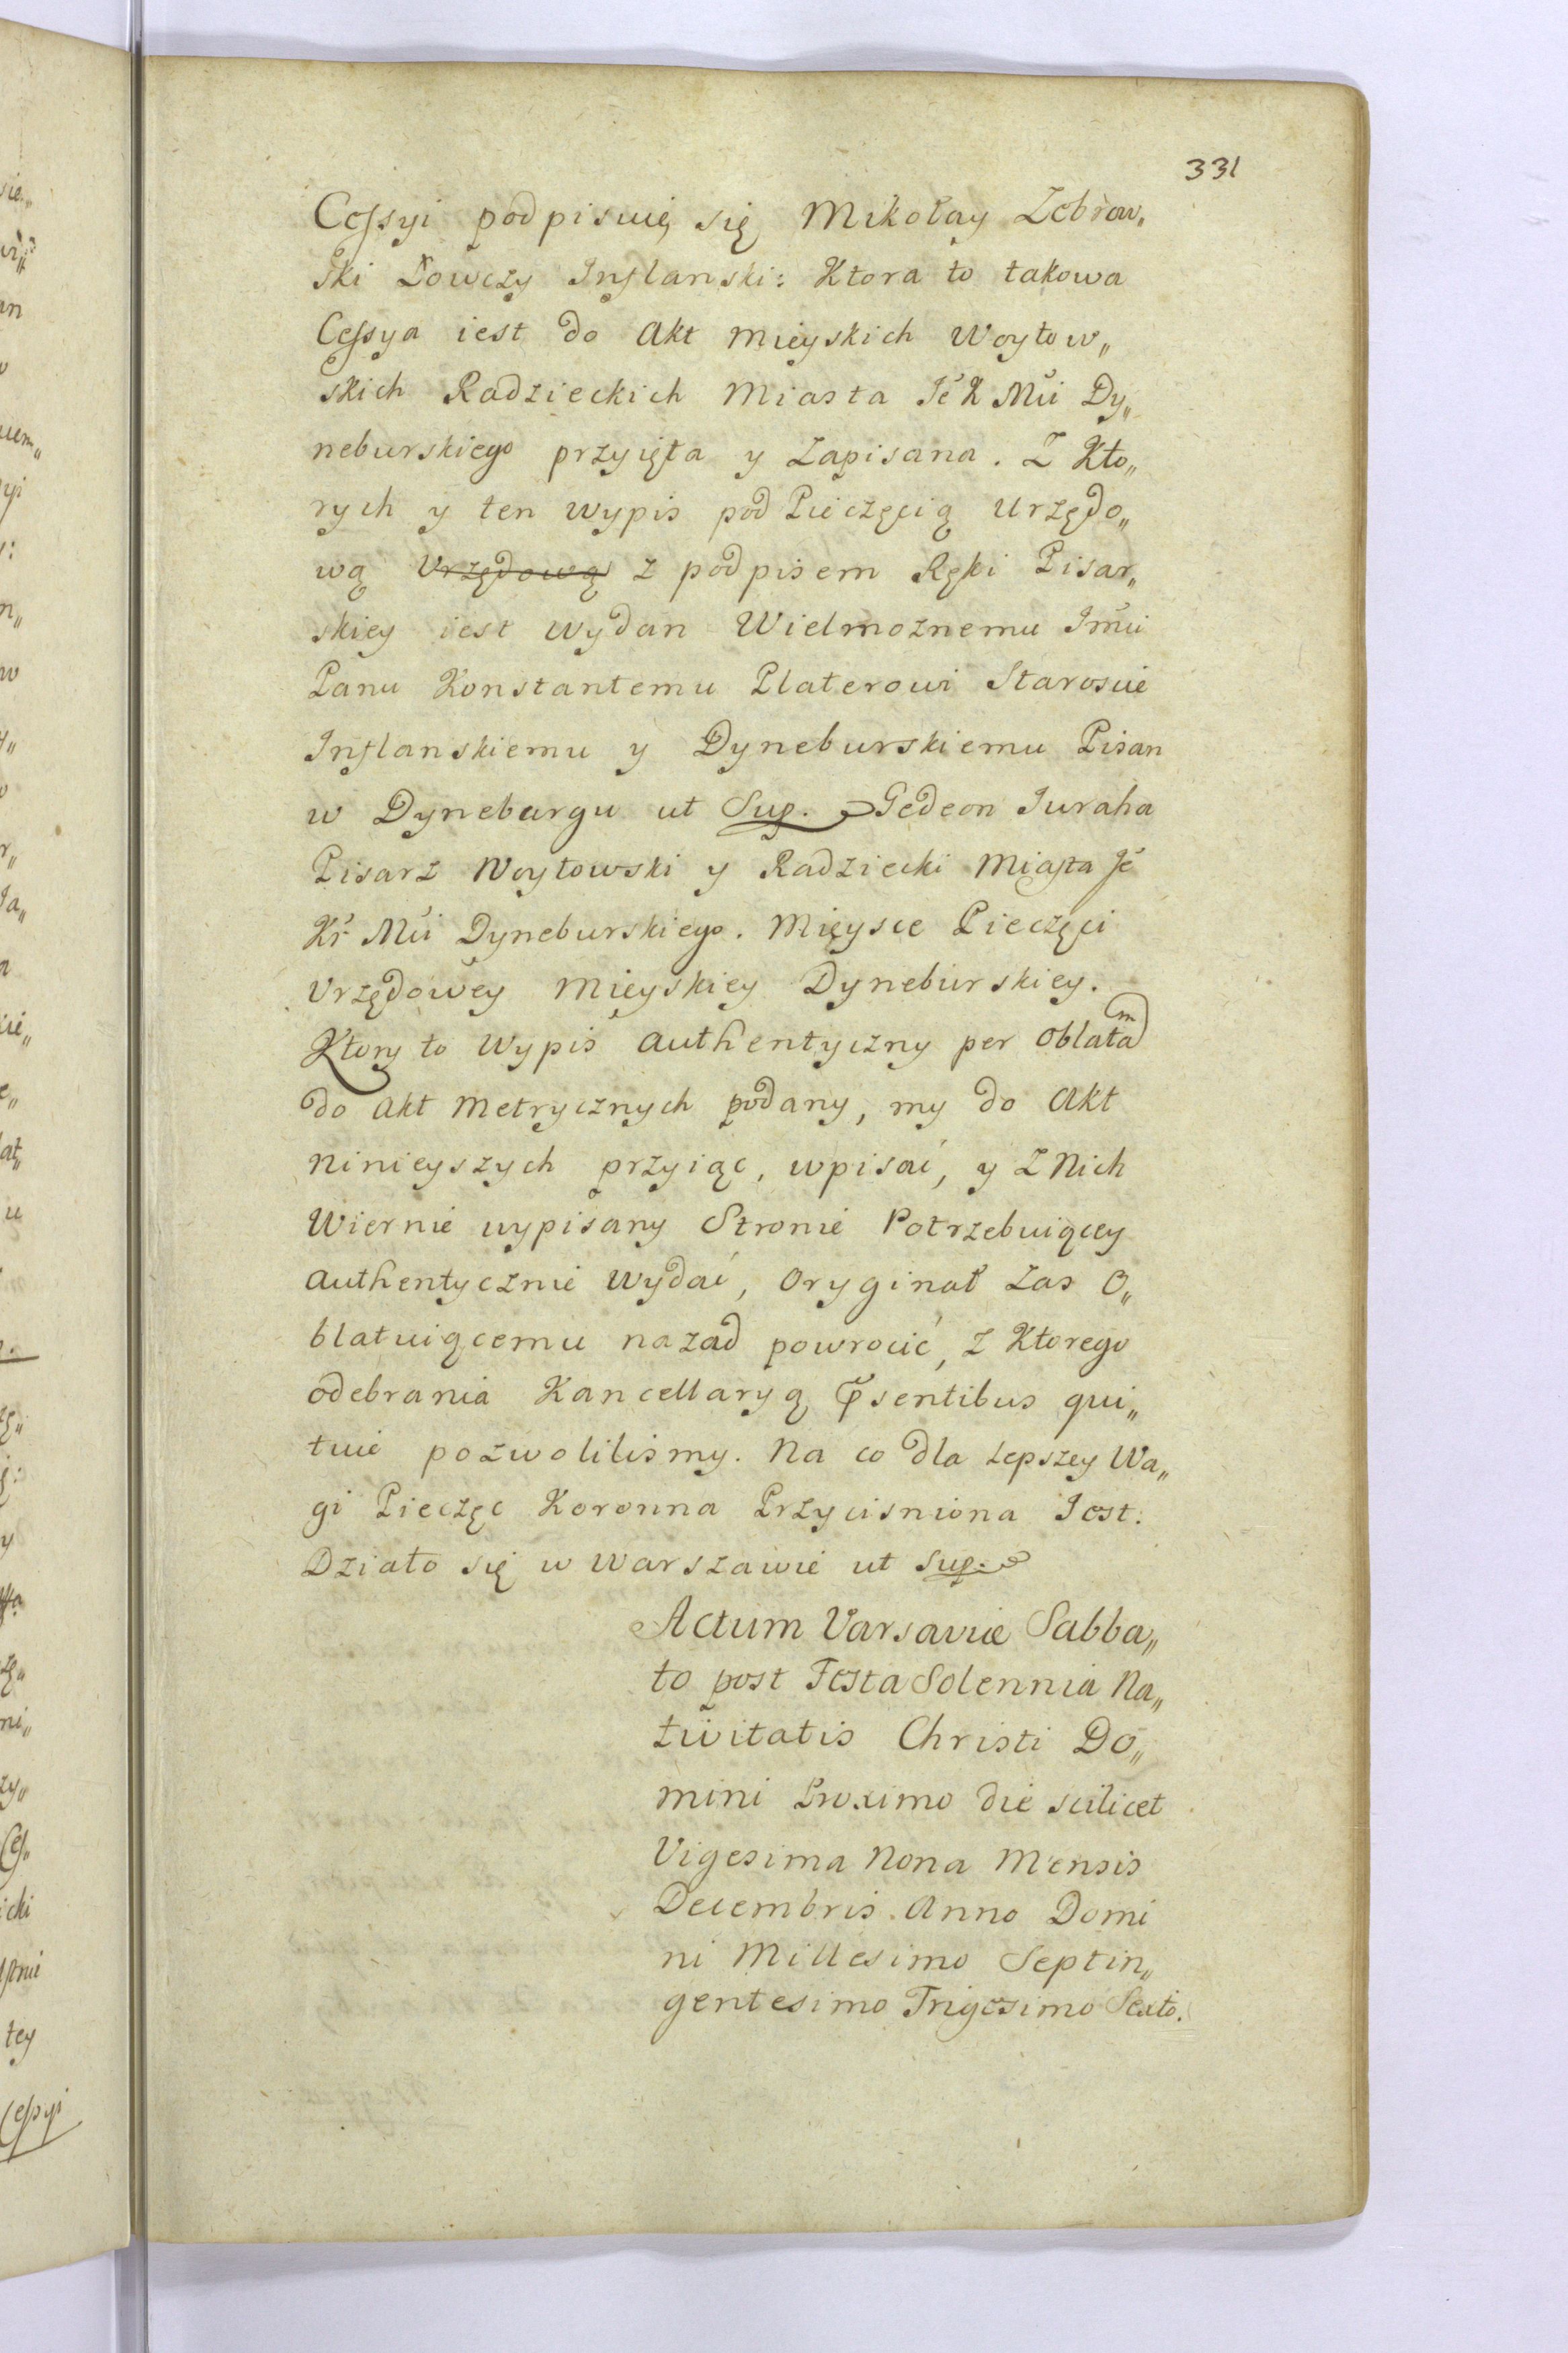 331
Cessyi podpisuię się Mikołay Zebrow„
ski Łowczy Inflanski: Ktora to takowa
Cessya iest do Akt Mieyskich Woytow„
skich Radzieckich Miasta Jé K Mŭi Dy„
neburskiego przyięta y Zapisana. Z Kto„
rych y ten wypis pod Pieczęcią Urzędo„
wą Vrzędową z podpisem Ręki Pisar„
skiey iest wydan Wielmoznemu Jmŭi
Panu Konstantemu Platerowi Starosċie
Inflanskiemu y Dyneburskiemu Pisan
w Dyneburgu ut Sup. Gedeon Juraha
Pisarz Woytowski y Radziecki Miasta Jé
Kŕ Mŭi Dyneburskiego. Mięysce Pieczęci
Vrzędowey Mieyskiey Dyneburskiey.
Ktory to Wypis Authentyczny per Oblatam
do Akt Metrycznych podany, my do Akt
ninieyszych przyiąc, wpisać, y z Nich
Wiernie wypisany Stronie Potrzebuiącey
Authentycznie wydać, Oryginał zas O„
blatuiącemu nazad powrocić, z Ktorego
odebrania Kancellaryą p̃sentibus qui„
tuie pozwolilismy. Na co dla Lepszey Wa„
gi Pieczęc Koronna Przycisniona Iest.
Działo się w Warszawie ut Sup.
Actum Varsaviæ Sabba„
to post Festa Solennia Na„
tivitatis Christi Do„
mini Proximo die scilicet
Vigesima Nona Mensis
Decembris Anno Domi
ni Millesimo Septin„
gentesimo Trigesimo Sexto.